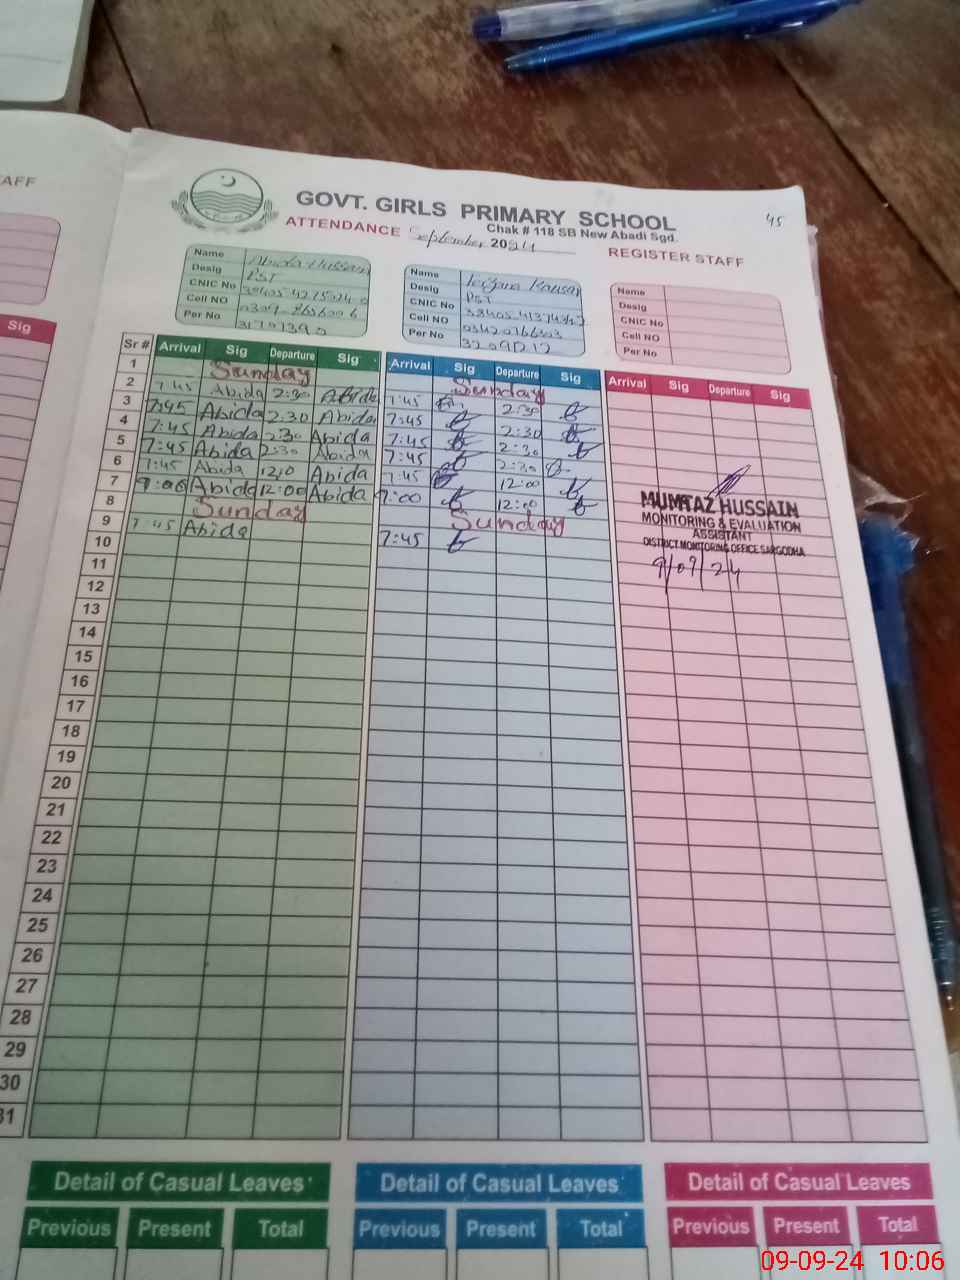 AFF
Sig
GOVT. GIRLS PRIMARY SCHOOL
Chak # 118 SB New Abadi Sgd.
45
ATTENDANCE September 2024
REGISTER STAFF
Name Abida Hussain
Desig PST
CNIC No
Cell NO
Per No
Name Kausar
Desig PST
CNIC No
Cell NO
Per No
Name
Desig
CNIC No
Cell NO
Per No
Sr # Arrival Sig Departure Sig Arrival Sig Departure Sig Arrival Sig Departure Sig
1 Sunday Sunday
2 7:45 Abida 2:30 Abida 7:45 2:30
3 7:45 Abida 2:30 Abida 7:45 2:30
4 7:45 Abida 2:30 Abida 7:45 2:30
5 7:45 Abida 2:30 Abida 7:45 2:30
6 7:45 Abida Abida 7:45 12:00
7 9:00 Abida 12:00 Abida 9:00 12:00
8 Sunday Sunday
9 7:45 Abida 7:45
MUMTAZ HUSSAIN
MONITORING & EVALUATION
ASSISTANT
DISTRICT MONITORING OFFICE SARGODHA
9/09/24
10
11
12
13
14
15
16
17
18
19
20
21
22
23
24
25
26
27
28
29
30
31
Detail of Casual Leaves Detail of Casual Leaves Detail of Casual Leaves
Previous Present Total Previous Present Total Previous Present Total
09-09-24 10:06